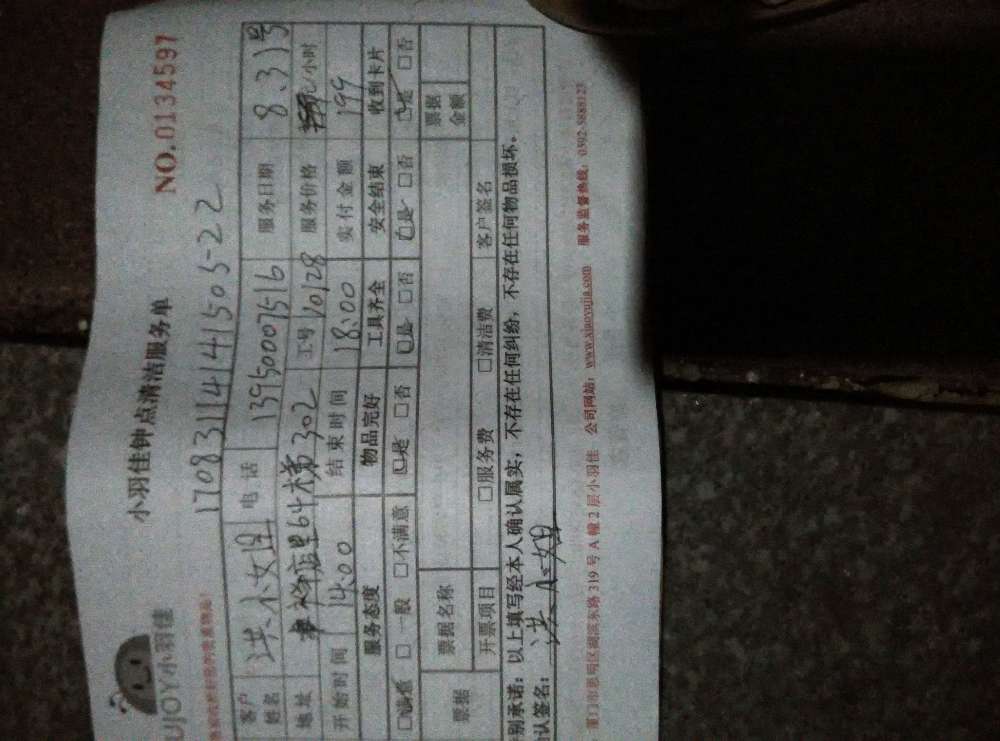 UJOY小羽佳
小羽佳钟点清洁服务单
NO.0134597
170831141415 05-22
客户姓名 洪小姐 电话 13950007516 服务日期 8.31号
地址 店里64栋302 工号 10128 服务价格 元/小时
开始时间 14:00 结束时间 18:00 实付金额 199
服务态度 物品完好 工具齐全 安全结束 收到卡片
□满意 □一般 □不满意 □是 □否 □是 □否 □是 □否 □是 □否
票据 票据名称 票据金额
开票项目 □服务费 □清洁费 客户签名
别承诺：以上填写经本人确认属实，不存在任何纠纷，不存在任何物品损坏。
认签名： 洪小姐
厦门市思明区湖滨东路319号A幢2层小羽佳 公司网站：www.xiaoyujia.com 服务监督热线：0592-5888123